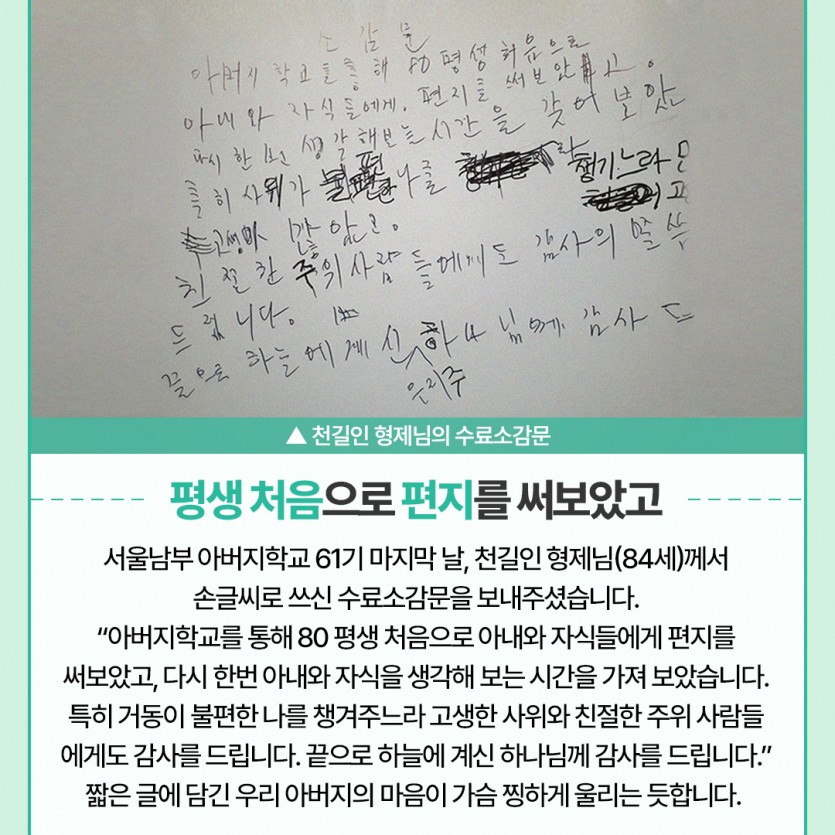 소감문
아버지 학교를 통해 80 평생 처음으로
아내와 자식들에게. 편지를 써보았고.
다시 한번 생각해보는 시간을 갖어 보았
특히 사위가 불편한 나를 챙기느라
고생이 많았고.
친절한 주위 사람들에게도 감사의 말씀
드립니다.
끝으로 하늘에 계신 하나님께 감사드
은지주
▲ 천길인 형제님의 수료소감문
평생 처음으로 편지를 써보았고
서울남부 아버지학교 61기 마지막 날, 천길인 형제님(84세)께서
손글씨로 쓰신 수료소감문을 보내주셨습니다.
“아버지학교를 통해 80 평생 처음으로 아내와 자식들에게 편지를
써보았고, 다시 한번 아내와 자식을 생각해 보는 시간을 가져 보았습니다.
특히 거동이 불편한 나를 챙겨주느라 고생한 사위와 친절한 주위 사람들
에게도 감사를 드립니다. 끝으로 하늘에 계신 하나님께 감사를 드립니다.”
짧은 글에 담긴 우리 아버지의 마음이 가슴 찡하게 울리는 듯합니다.